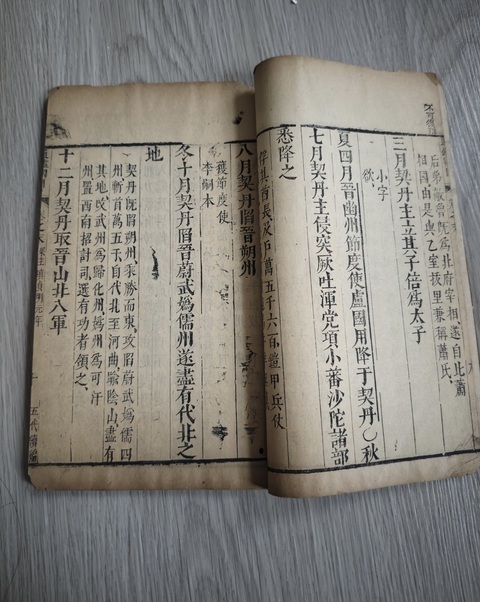 后弟敵魯爲北府宰相遂自此蕭
相國由是與乙室拔里兼稱蕭氏
三月契丹主立其子倍爲太子
小字
欲
夏四月晉幽州節度使盧國用降于契丹〇秋
七月契丹主侵突厥吐渾党項小蕃沙陀諸部
悉降之
俘其酋長及戶萬五千六百鎧甲兵仗
八月契丹陷晉朔州
獲節度使
李嗣本
冬十月契丹陷晉蔚武嬀儒州遂盡有代北之
地
契丹旣陷朔州、乘勝而東、攻陷蔚武嬀儒四
州斬首萬五千自代北至河曲、踰陰山、盡有
其地、改武州、爲歸化州、嬀州、爲可汗
州、置西南招討司、選有功者領之、
十二月契丹取晉山北八軍